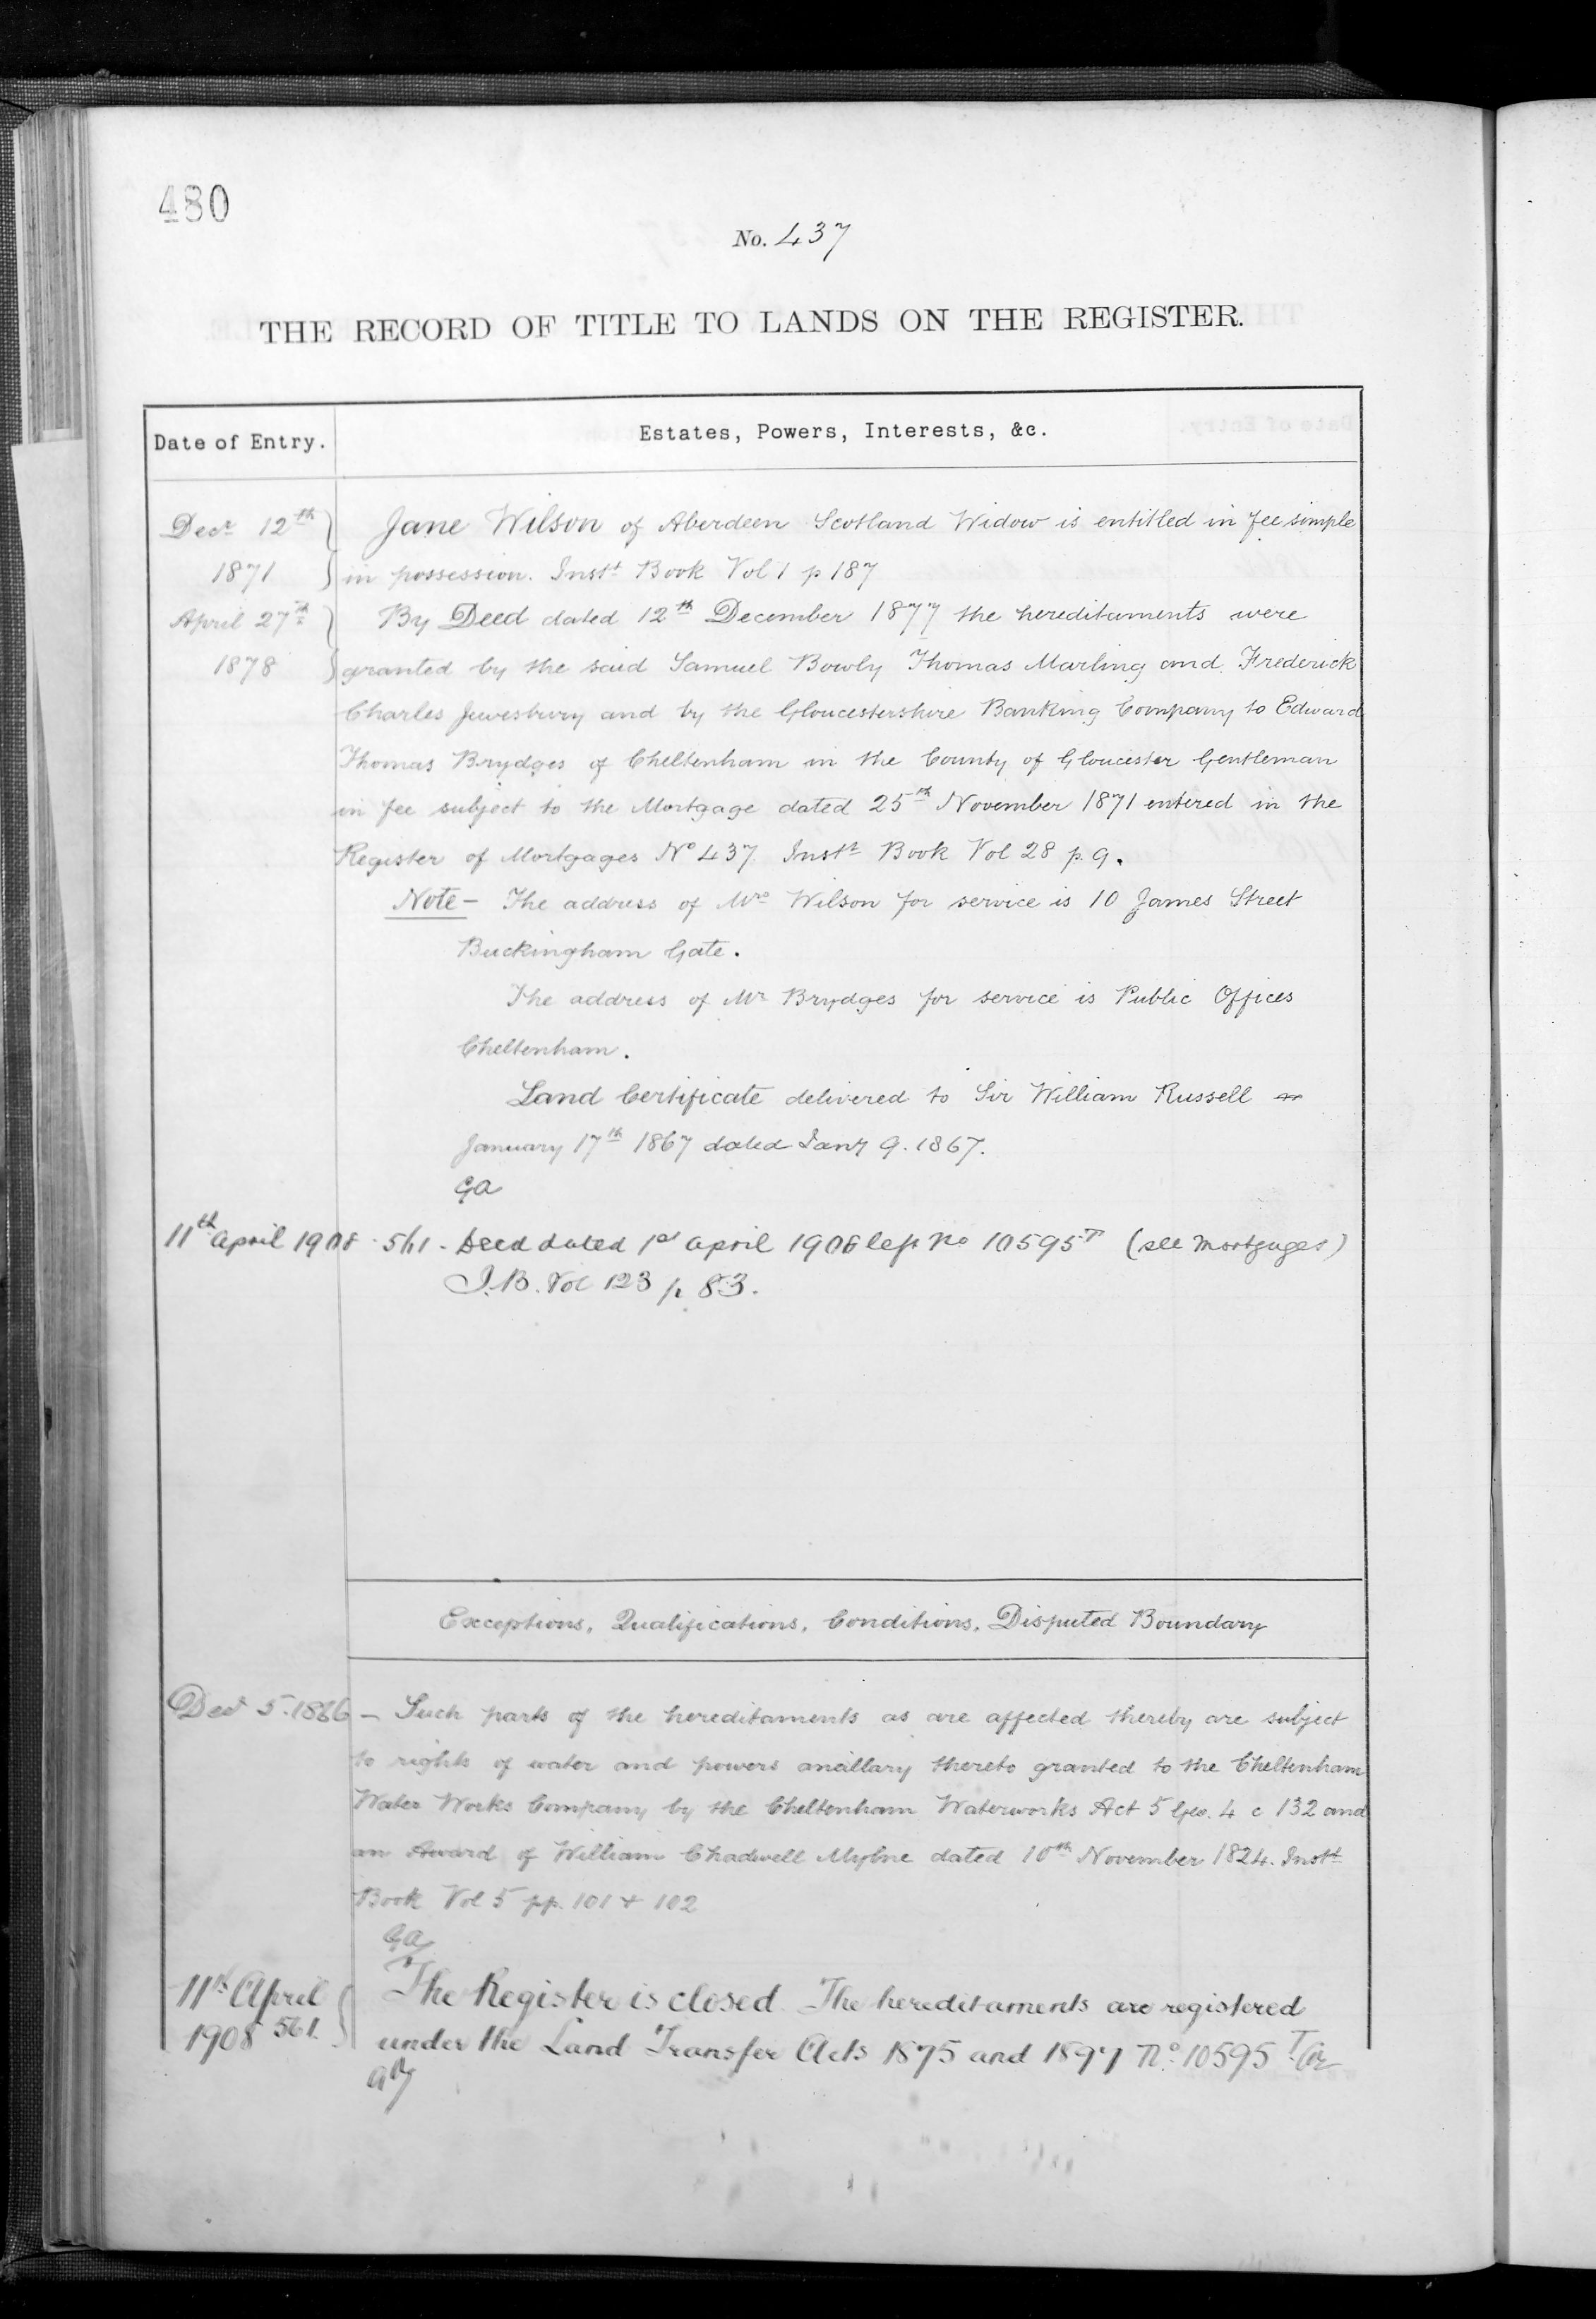 480
No. 437
THE RECORD OF TITLE TO LANDS ON THE REGISTER.
Date of Entry.
Estates, Powers, Interests, &c.
Decr 12th } Jane Wilson of Aberdeen Scotland Widow is entitled in fee simple
1871 } in possession. Instt Book Vol 1 p 187
April 27th } By Deed dated 12th December 1877 the hereditaments were
1878 } granted by the said Samuel Bowly Thomas Marling and Frederick
Charles Jewesbury and by the Gloucestershire Banking Company to Edward
Thomas Brydges of Cheltenham in the County of Gloucester Gentleman
in fee subject to the Mortgage dated 25th November 1871 entered in the
Register of Mortgages No 437. Instt Book Vol 28 p. 9.
Note - The address of Mrs Wilson for service is 10 James Street
Buckingham Gate.
The address of Mr Brydges for service is Public Offices
Cheltenham.
Land Certificate delivered to Sir William Russell
January 17th 1867 dated Jany 9. 1867.
GA
11th April 1908 561. Deed dated 1st April 190 No 10595 (see Mortgages)
I.B. Vol 123 p. 83.
Exceptions, Qualifications, Conditions, Disputed Boundary
Decr 5. 1866 — Such parts of the hereditaments as are affected thereby are subject
to rights of water and powers ancillary thereto granted to the Cheltenham
Water Works Company by the Cheltenham Waterworks Act 5 Geo. 4 c 132 and
an Award of William Chadwell Mylne dated 10th November 1824. Instt
Book Vol 5 pp. 101 & 102
GA
11th April } The Register is closed. The hereditaments are registered
1908 561. } under the Land Transfer Acts 1875 and 1897 No. 10595